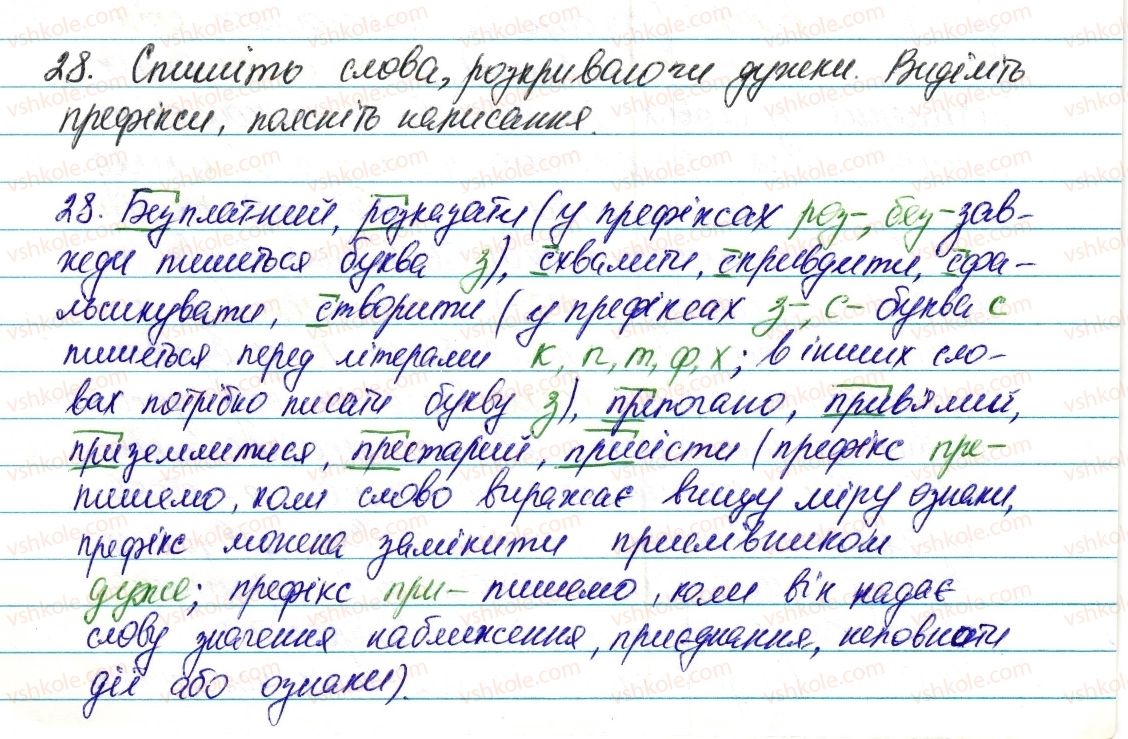 28. Спишіть слова, розкриваючи дужки. Виділіть
префікси, поясніть написання.
28. Безплатний, розказати (у префіксах роз-, без- зав-
жди пишеться буква з), схвалити, справдити, сфа-
льсикувати, створити (у префіксах з-, с- буква с
пишеться перед літерами к, п, т, ф, х; в інших сло-
вах потрібно писати букву з), препогано, прив'ялий,
приземлитися, престарий, присісти (префікс пре-
пишемо, коли слово виражає вищу міру ознаки,
префікс можна замінити прислівником
дуже; префікс при- пишемо, коли він надає
слову значення наближення, приєднання, неповноти
дії або ознаки).